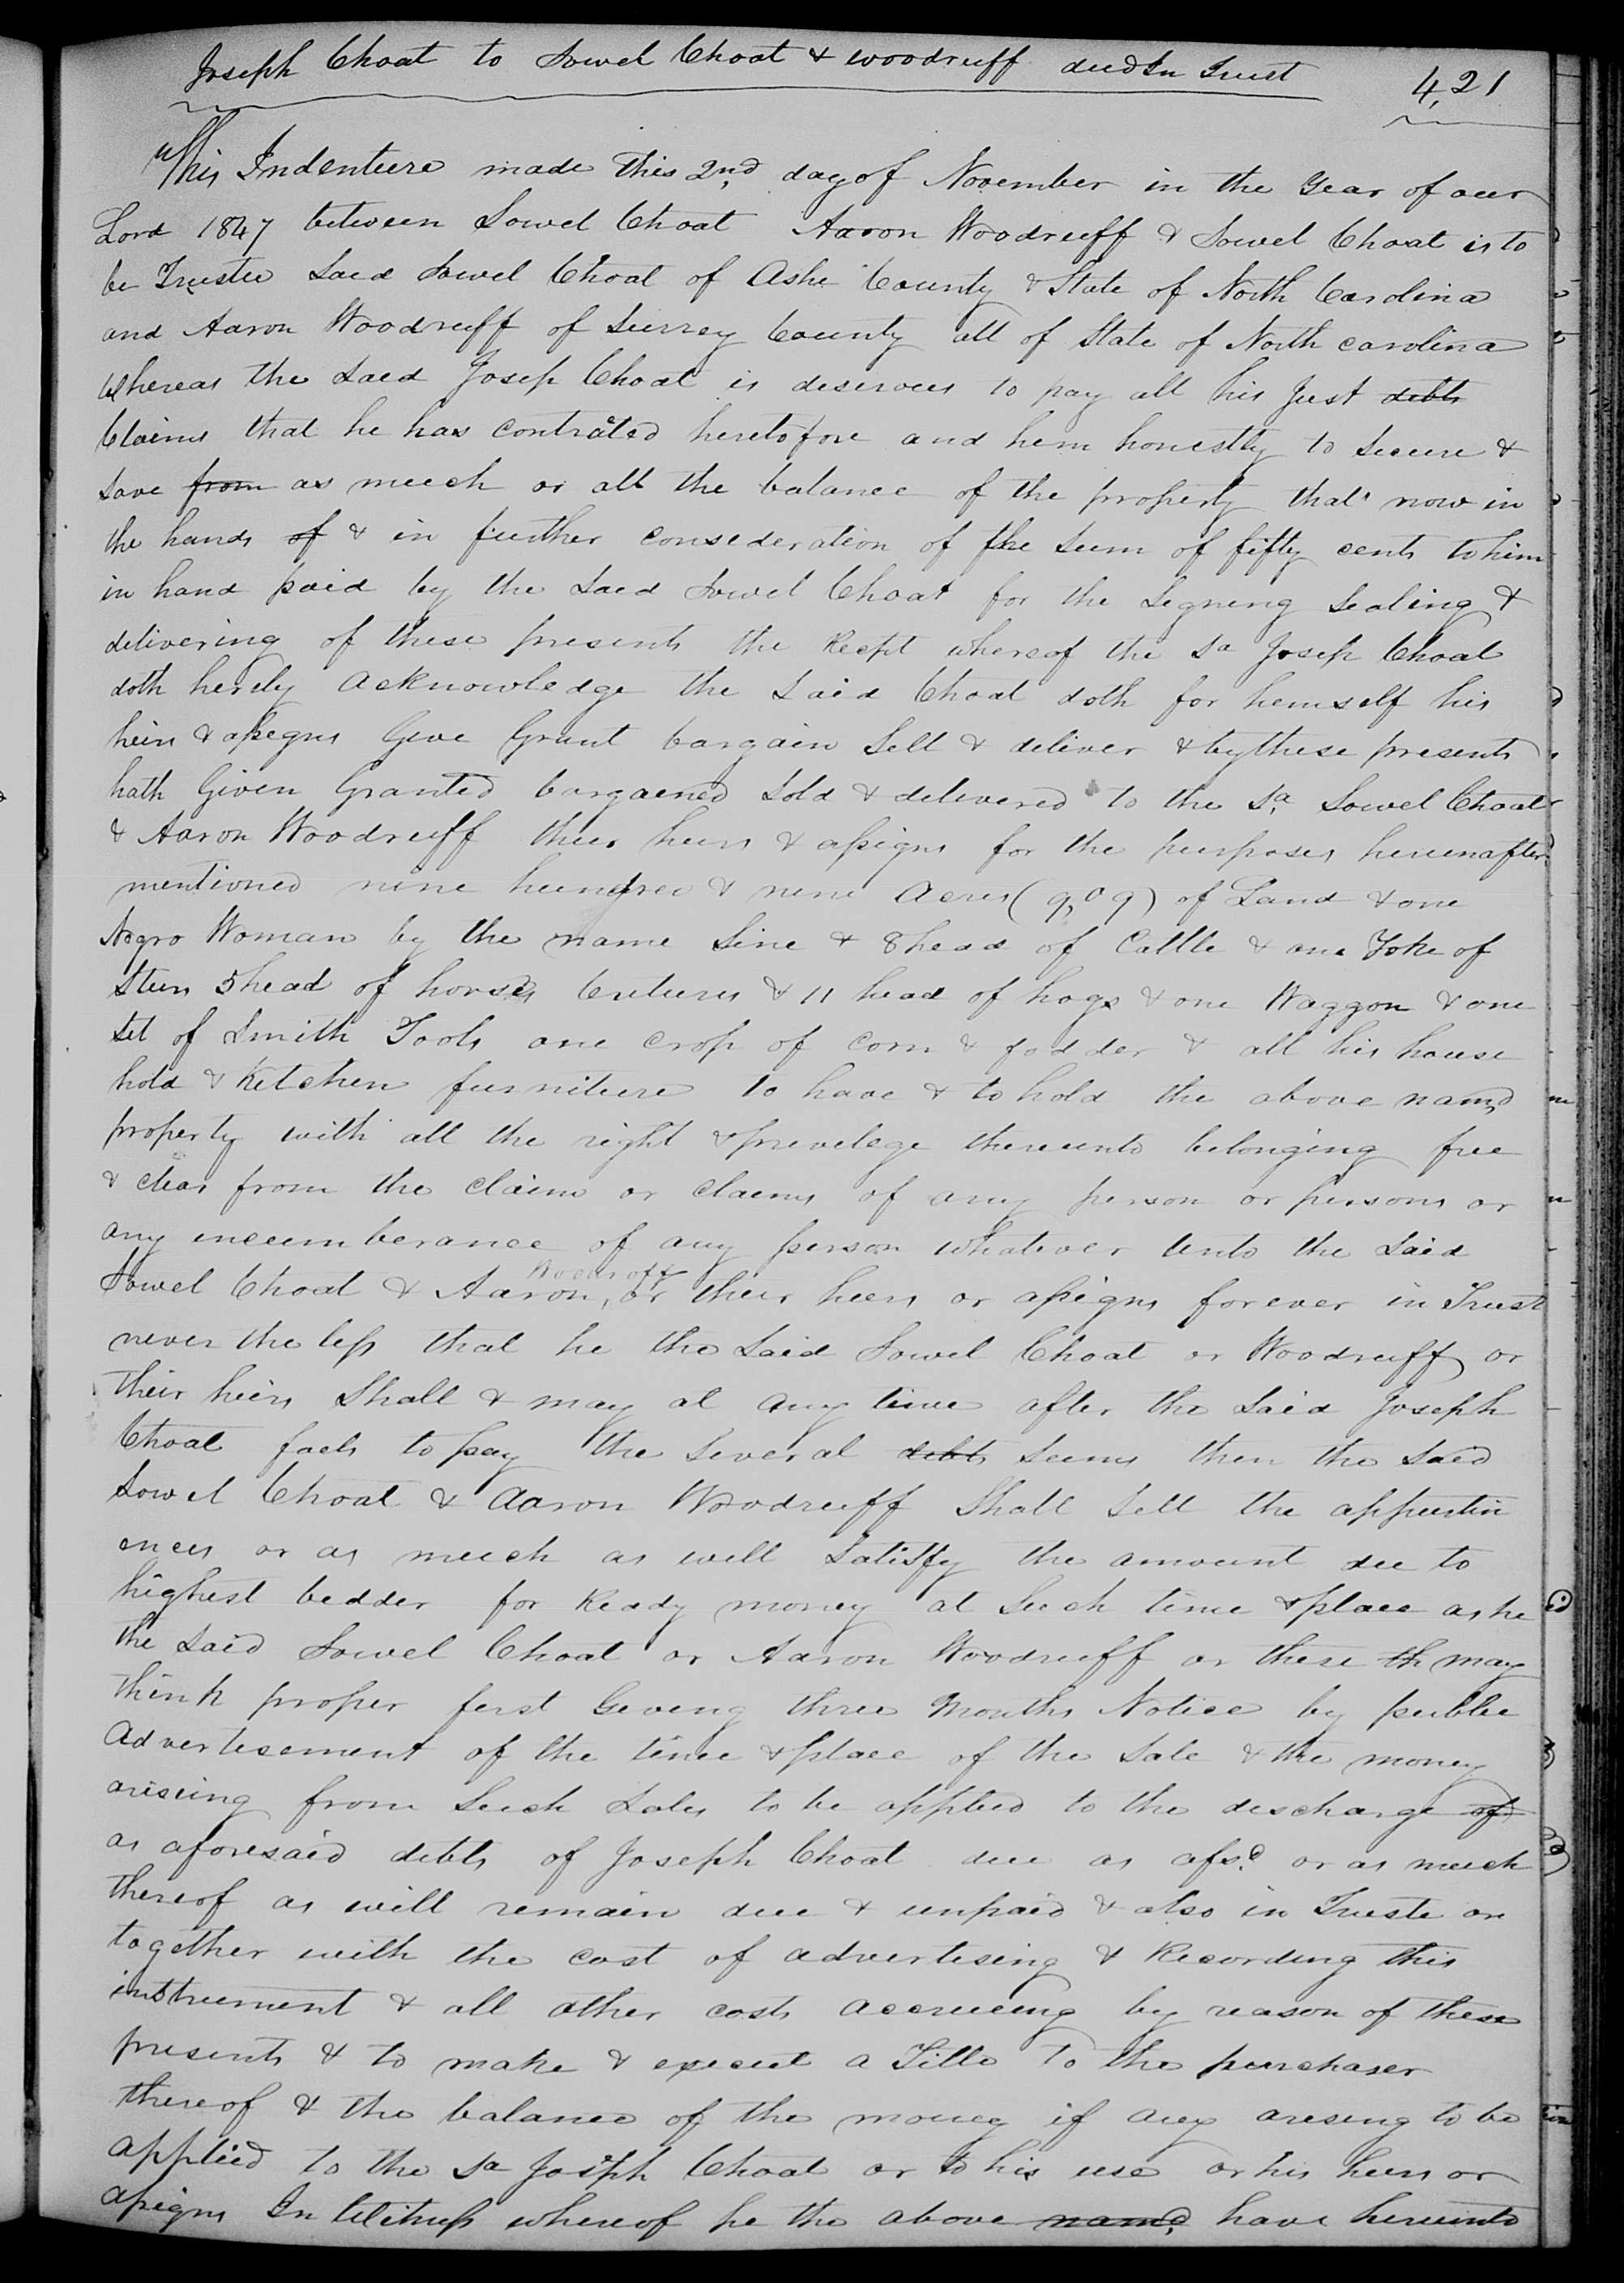 Joseph Choat to Sowel Choat & woodruff deed In Trust
421
This Indenture made this 2nd day of November in the Year of our
Lord 1847 between Sowel Choat Aaron Woodruff & Sowel Choat is to
be Trustee Said Sowel Choat of Ashe County & State of North Carolina
and Aaron Woodruff of Surrey County all of State of North carolina
Whereas the Said Josep Choat is desirous to pay all his Just debts
Claims that he has contrated heretofore and hem honestly to Secure &
Save from as much or all the balance of the property that now in
the hands of & in further consederation of the Sum of fifty cents to him
in hand paid by the Said Sowel Choat for the Segneng Sealing &
delivering of these presents the Recpt whereof the Sd Josep Choat
doth herely acknowledge the Said Choat doth for hemself his
heirs & assegns Geve Grant bargain Sell & deliver & by these presents
hath Given Granted bargained Sold & delivered to the Sd Sowel Choat
& Aaron Woodruff their heirs & assigns for the purposes hereinafter
mentioned nine hundred & nine Acres (909) of Land & one
Negro Woman by the name Sine & 8 head of Cattle & one Yoke of
Steers 5 head of horses Cretures & 11 head of hogs & one Waggon & one
Set of Smith Tools one crop of corn & fodder & all his house
hold & Ketchen furniture to have & to hold the above named
property with all the right & prevelege thereunto belonging free
& clear from the claim or claims of any person or persons or
any incumberance of any person whatever Unto the Said
Sowel Choat & Aaron, Woodruff or their heirs or assigns forever in Trust
never the less that he the Said Sowel Choat or Woodruff or
their heirs Shall & may at any time after the Said Joseph
Choat fails to pay the Several debts Sums then the Said
Sowel Choat & Aaron Woodruff Shall Sell the appurtin
ences or as much as will Satisfy the amount due to
highest bedder for Ready money at Such time & place as he
the Said Sowel Choat or Aaron Woodruff or these th may
think proper ferst Geveng three Months Notice by publec
Advertisement of the time & place of the Sale & the money
ariseing from Such Sales to be applied to the descharge of
as aforesaid debts of Joseph Choat due as afsd or as much
thereof as will remain due & unpaid & also in Truste or
together with the cost of advertising & Recording this
instrument & all other costs accrueing by reason of these
presents & to make & execute a Title to the purchaser
thereof & the balance of the money if any areseng to be
applied to the Sd Joseph Choat or to his use or his heirs or
assigns In Witness whereof he the above named have hereunto